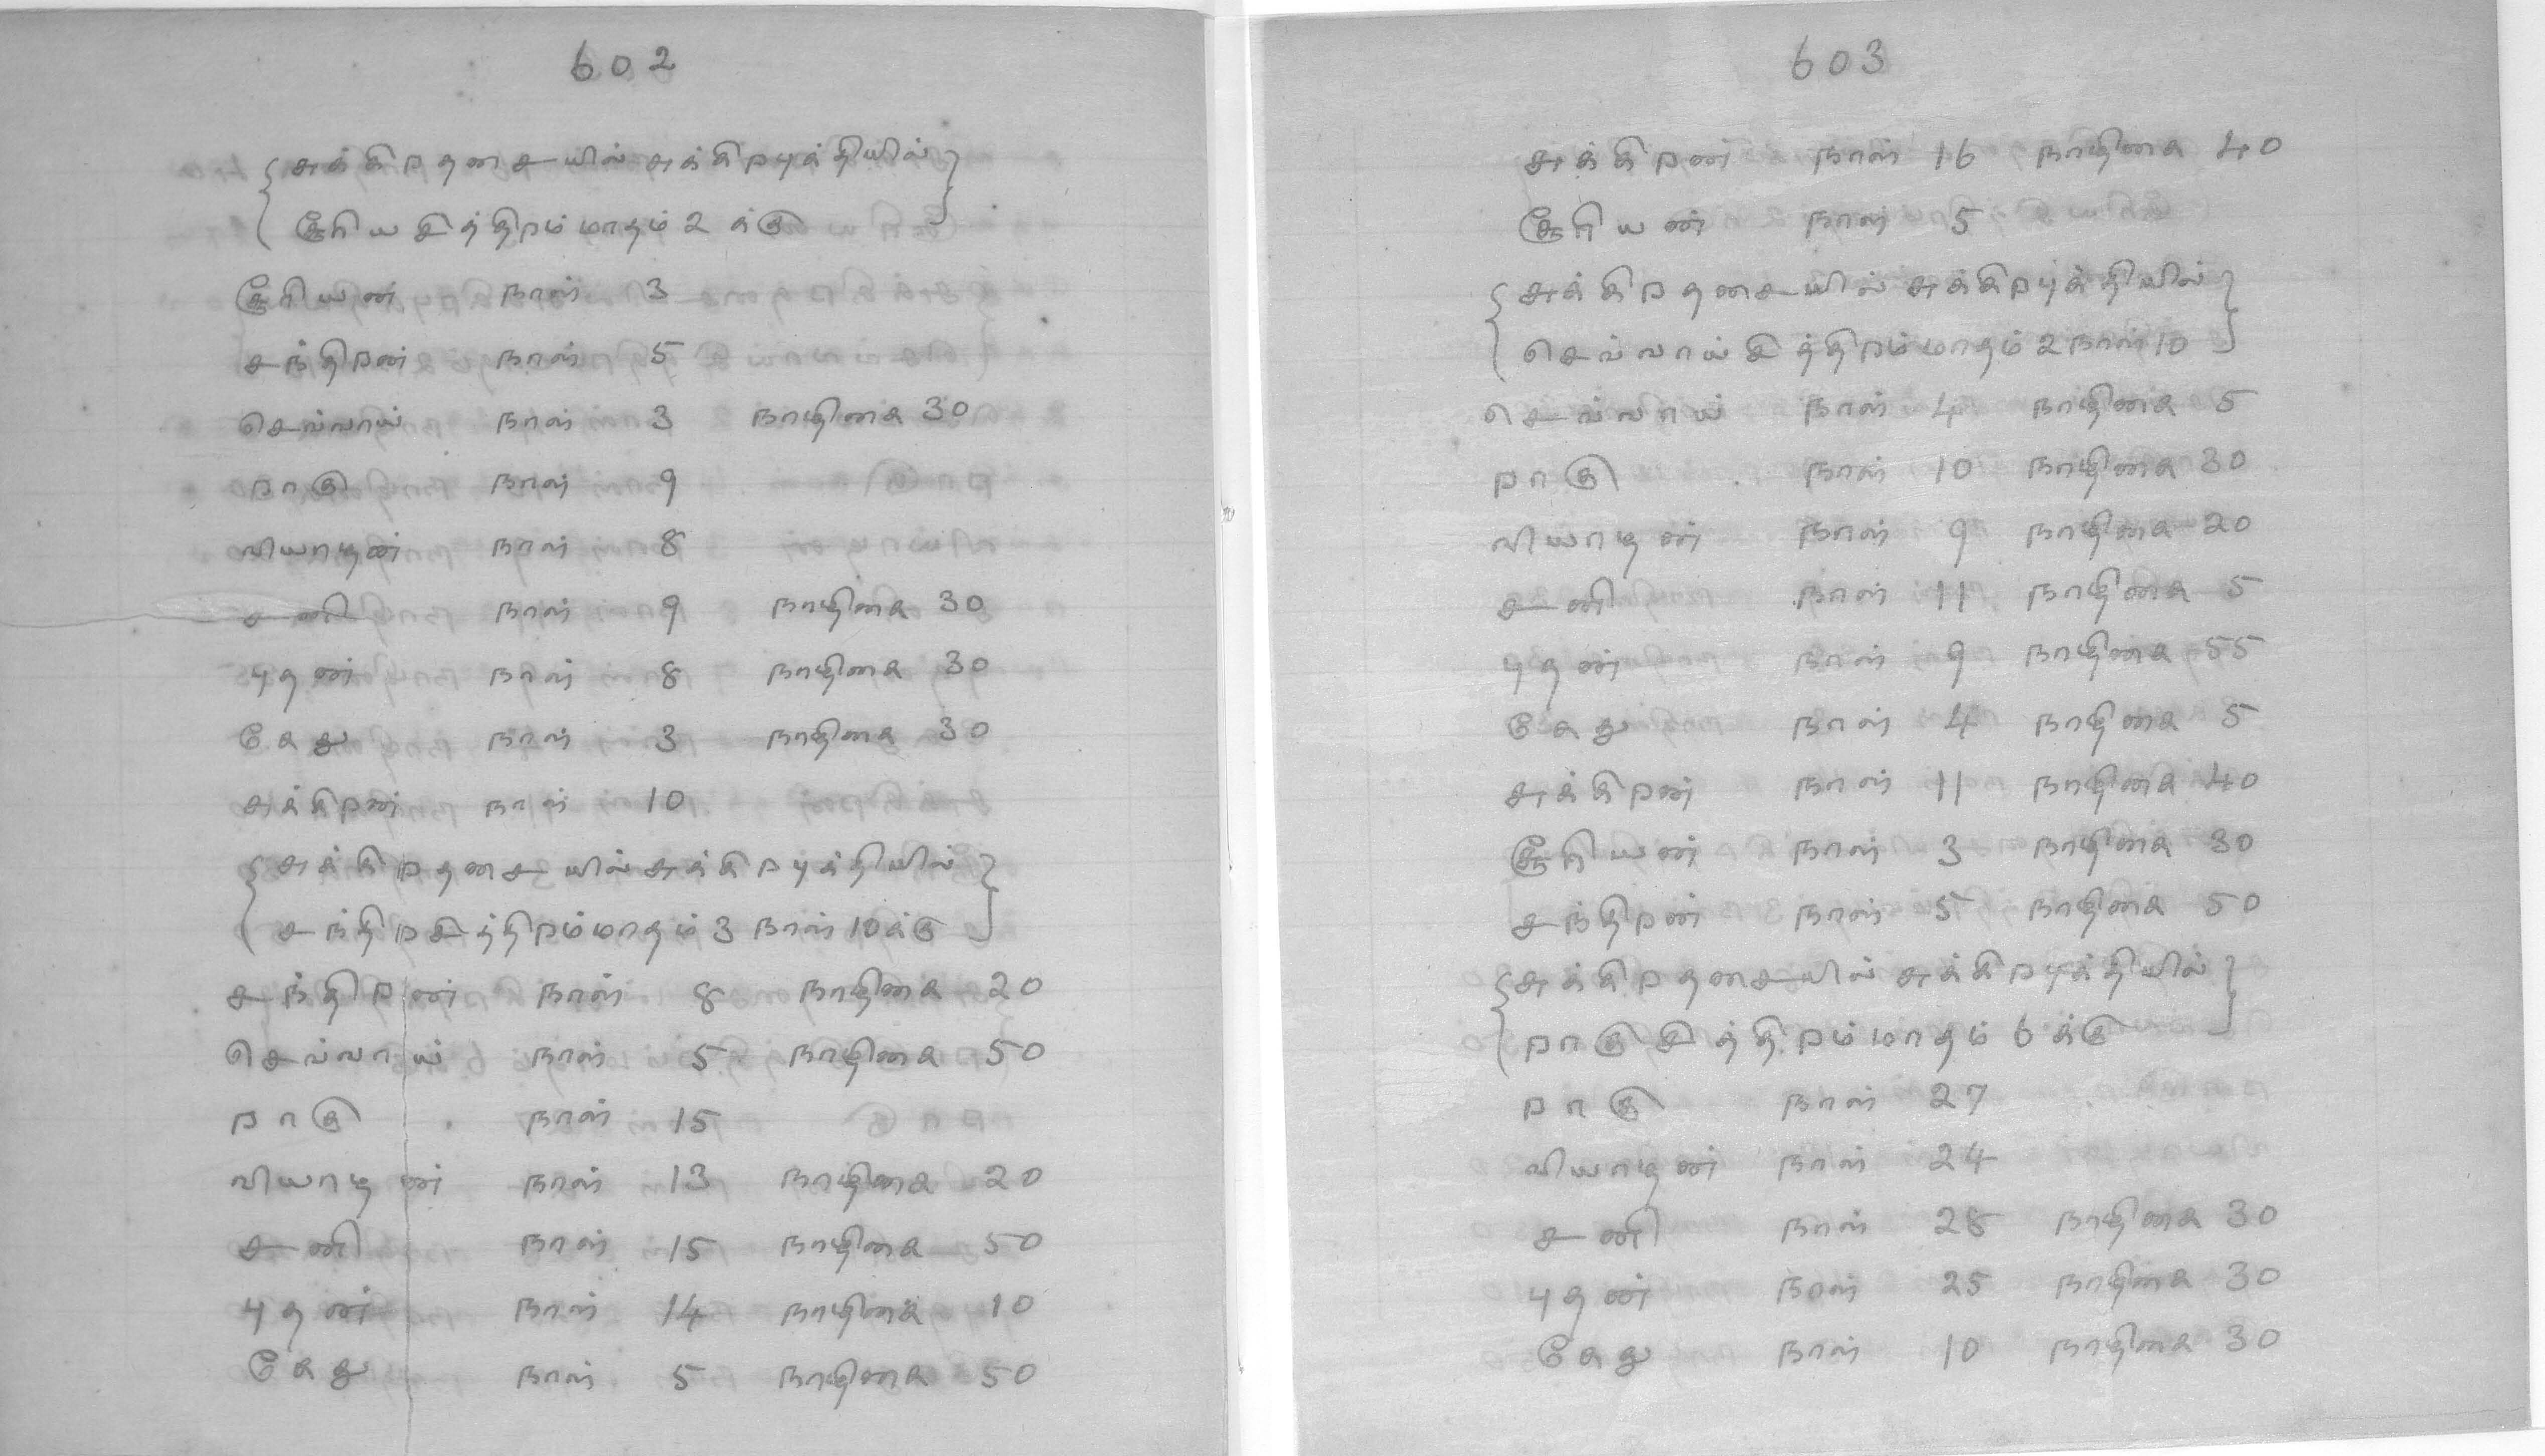 602
சுக்கிறதசையில் சுக்கிறபுக்தியில்
சூரியசித்திறம் மாதம் 2 க்கு
சூரியன் நாள் 3
சந்திறன் நாள் 5
செவ்வாய் நாள் 3 நாழிகை 30
றாகு நாள் 9
வியாழன் நாள் 8
சனி நாள் 9 நாழிகை 30
புதன் நாள் 8 நாழிகை 30
கேது நாள் 3 நாழிகை 30
சுக்கிறன் நாள் 10
சுக்கிறதசையில் சுக்கிறபுக்தியில்
சந்திறசித்திறம் மாதம் 3 நாள் 10க்கு
சந்திறன் நாள் 8 நாழிகை 20
செவ்வாய் நாள் 5 நாழிகை 50
றாகு நாள் 15
வியாழன் நாள் 13 நாழிகை 20
சனி நாள் 15 நாழிகை 50
புதன் நாள் 14 நாழிகை 10
கேது நாள் 5 நாழிகை 50
603
சுக்கிறன் நாள் 16 நாழிகை 40
சூரியன் நாள் 5
சுக்கிறதசையில் சுக்கிறபுக்தியில்
செவ்வாய்சித்திறம் மாதம் 2 நாள் 10
செவ்வாய் நாள் 4 நாழிகை 5
றாகு நாள் 10 நாழிகை 30
வியாழன் நாள் 9 நாழிகை 20
சனி நாள் 11 நாழிகை 5
புதன் நாள் 9 நாழிகை 55
கேது நாள் 4 நாழிகை 5
சுக்கிறன் நாள் 11 நாழிகை 40
சூரியன் நாள் 3 நாழிகை 30
சந்திறன் நாள் 5 நாழிகை 50
சுக்கிறதசையில் சுக்கிறபுக்தியில்
றாகுசித்திறம் மாதம் 6 க்கு
றாகு நாள் 27
வியாழன் நாள் 24
சனி நாள் 28 நாழிகை 30
புதன் நாள் 25 நாழிகை 30
கேது நாள் 10 நாழிகை 30